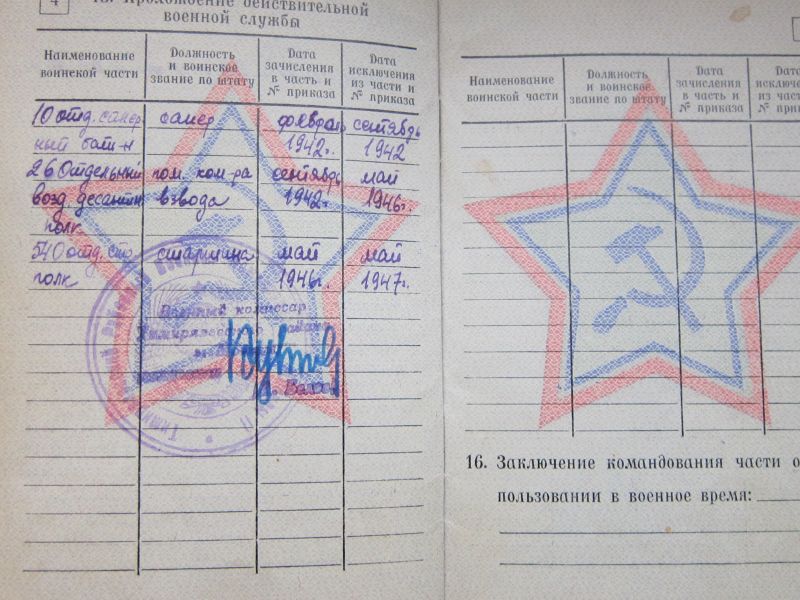 4
Прохождение действительной
военной службы
Наименование воинской части
Должность и воинское звание по штату
Дата зачисления в часть и № приказа
Дата исключения из части и № приказа
10 отд. сапер сапер февраль сентябрь
ный бат-н 1942г. 1942
26 Отдельный пом. ком-ра сентябрь май
возд. десантн взвода 1942г. 1946г.
полк
540 отд. старшина май май
полк 1946г. 1947г.
Военный комиссар
Тимирязевского района
Наименование воинской части
Должность и воинское звание по штату
Дата зачисления в часть и № приказа
Дата
из части и
№ при
16. Заключение командования части о
пользовании в военное время: